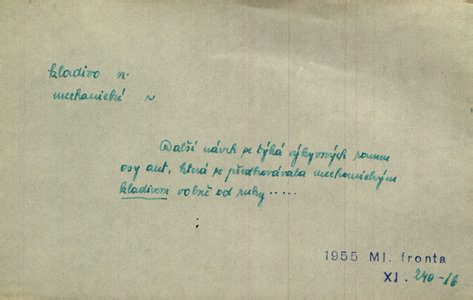 kladivo n.
mechanické ~
Další návrh se týká výkyvných ramen
osy aut, která se předkovávala mechanickým
kladivem volně od ruky.....
1955 Ml. fronta
XI. 240-16